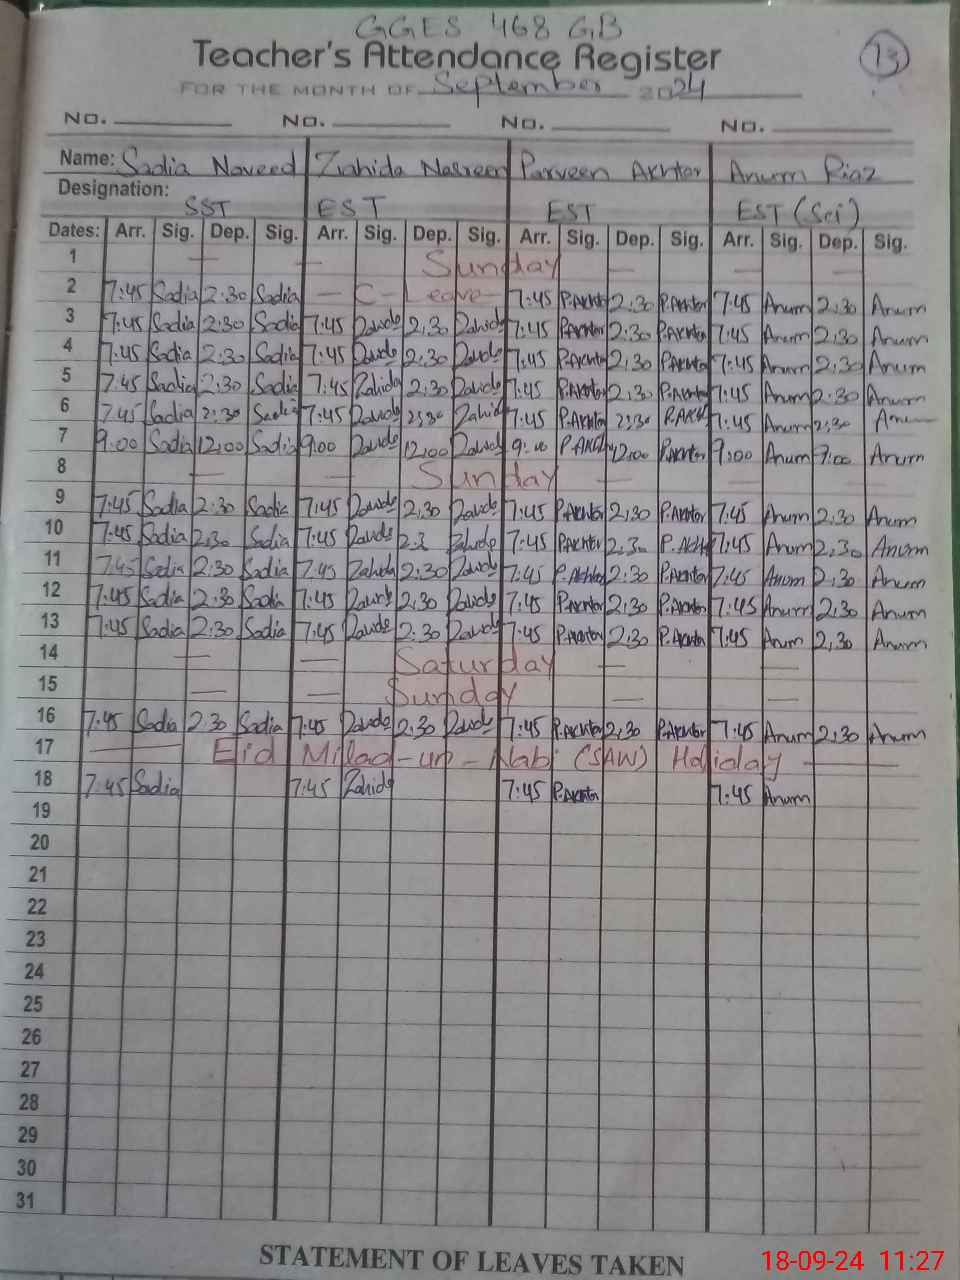 GGES 468 GB
Teacher's Attendance Register
13
FOR THE MONTH OF September 2024
No. No. No. No.
Name: Sadia Naveed Zahida Nasreen Parveen Akhter Anum Riaz
Designation:
SST EST EST EST (Sci)
Dates: Arr. Sig. Dep. Sig. Arr. Sig. Dep. Sig. Arr. Sig. Dep. Sig. Arr. Sig. Dep. Sig.
1 — — Sunday — — —
2 7:45 Sadia 2:30 Sadia — C - Leave - 7:45 P.Akhter 2:30 P.Akhter 7:45 Anum 2:30 Anum
3 7:45 Sadia 2:30 Sadia 7:45 Zahida 2:30 Zahida 7:45 P.Akhter 2:30 P.Akhter 7:45 Anum 2:30 Anum
4 7:45 Sadia 2:30 Sadia 7:45 Zahida 2:30 Zahida 7:45 P.Akhter 2:30 P.Akhter 7:45 Anum 2:30 Anum
5 7:45 Sadia 2:30 Sadia 7:45 Zahida 2:30 Zahida 7:45 P.Akhter 2:30 P.Akhter 7:45 Anum 2:30 Anum
6 7:45 Sadia 2:30 Sadia 7:45 Zahida 2:30 Zahida 7:45 P.Akhter 2:30 P.Akhter 7:45 Anum 2:30 Anum
7 9:00 Sadia 12:00 Sadia 9:00 Zahida 12:00 Zahida 9:00 P.Akhter 12:00 P.Akhter 9:00 Anum 9:00 Anum
8 — — Sunday — — —
9 7:45 Sadia 2:30 Sadia 7:45 Zahida 2:30 Zahida 7:45 P.Akhter 2:30 P.Akhter 7:45 Anum 2:30 Anum
10 7:45 Sadia 2:30 Sadia 7:45 Zahida 2:3 Zahida 7:45 P.Akhter 2:30 P.Akhter 7:45 Anum 2:30 Anum
11 7:45 Sadia 2:30 Sadia 7:45 Zahida 2:30 Zahida 7:45 P.Akhter 2:30 P.Akhter 7:45 Anum 2:30 Anum
12 7:45 Sadia 2:30 Sadia 7:45 Zahida 2:30 Zahida 7:45 P.Akhter 2:30 P.Akhter 7:45 Anum 2:30 Anum
13 7:45 Sadia 2:30 Sadia 7:45 Zahida 2:30 Zahida 7:45 P.Akhter 2:30 P.Akhter 7:45 Anum 2:30 Anum
14 — — Saturday — —
15 — — Sunday — —
16 7:45 Sadia 2:30 Sadia 7:45 Zahida 2:30 Zahida 7:45 P.Akhter 2:30 P.Akhter 7:45 Anum 2:30 Anum
17 — Eid Milad-un-Nabi (SAW) Holiday —
18 7:45 Sadia 7:45 Zahida 7:45 P.Akhter 7:45 Anum
19
20
21
22
23
24
25
26
27
28
29
30
31
STATEMENT OF LEAVES TAKEN
18-09-24 11:27